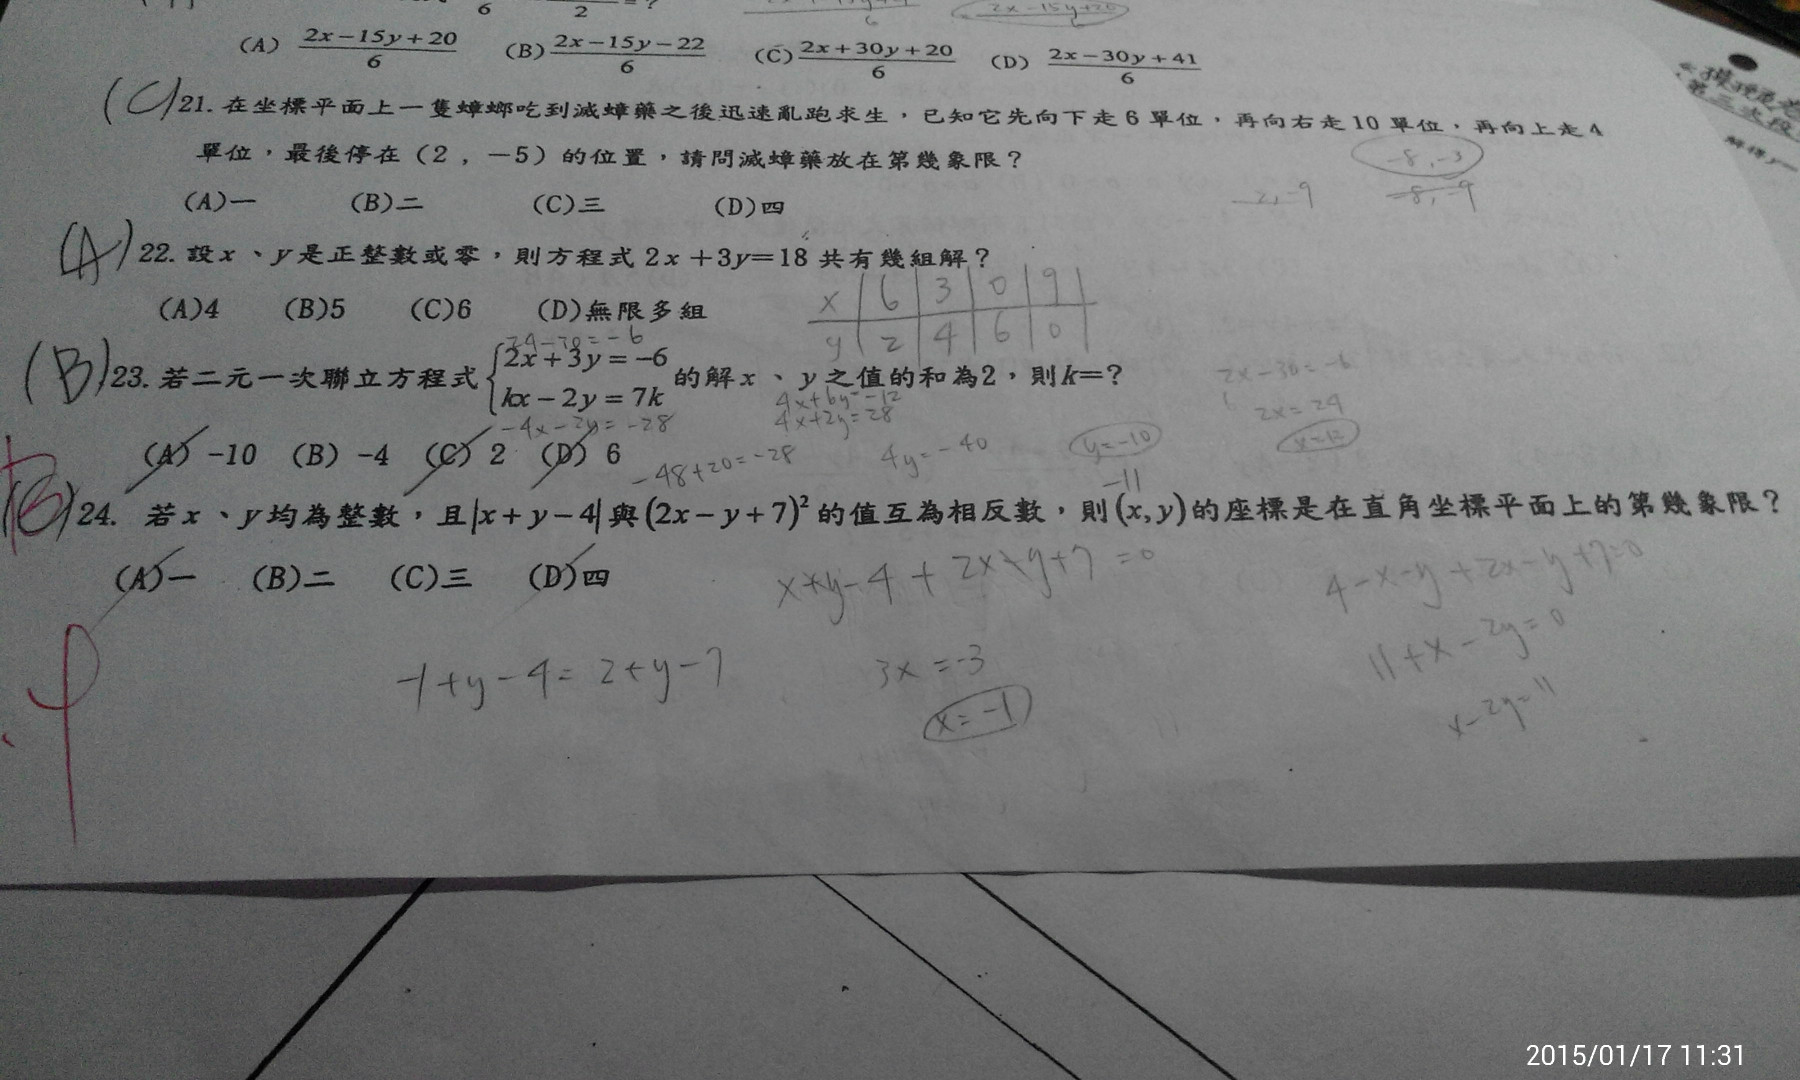 6 2 = ?
2x-15y+20
6
(A) 2x-15y+20/6 (B) 2x-15y-22/6 (C) 2x+30y+20/6 (D) 2x-30y+41/6
(C) 21. 在坐標平面上一隻蟑螂吃到滅蟑藥之後迅速亂跑求生，已知它先向下走6單位，再向右走10單位，再向上走4
單位，最後停在（2，-5）的位置，請問滅蟑藥放在第幾象限？
-8, -3
(A)一 (B)二 (C)三 (D)四
2, -9 -8, -9
(A) 22. 設x、y是正整數或零，則方程式2x+3y=18共有幾組解？
(A)4 (B)5 (C)6 (D)無限多組
x 6 3 0 9
y 2 4 6 0
24-30=-6
(B) 23. 若二元一次聯立方程式{2x+3y=-6
kx-2y=7k 的解x、y之值的和為2，則k=?
-4x-2y=-28
4x+6y=-12
4x+2y=28
2x-30=-6
2x=24
x=12
(A) -10 (B) -4 (C) 2 (D) 6
-48+20=-28
4y=-40
y=-10
-11
B
(C) 24. 若x、y均為整數，且|x+y-4|與(2x-y+7)²的值互為相反數，則(x,y)的座標是在直角坐標平面上的第幾象限？
(A)一 (B)二 (C)三 (D)四
x+y-4+2x-y+7=0
4-x-y+2x-y+7=0
-1+y-4=2+y-7
3x=-3
11+x-2y=0
x=-1
x-2y=11
第三次段
2015/01/17 11:31